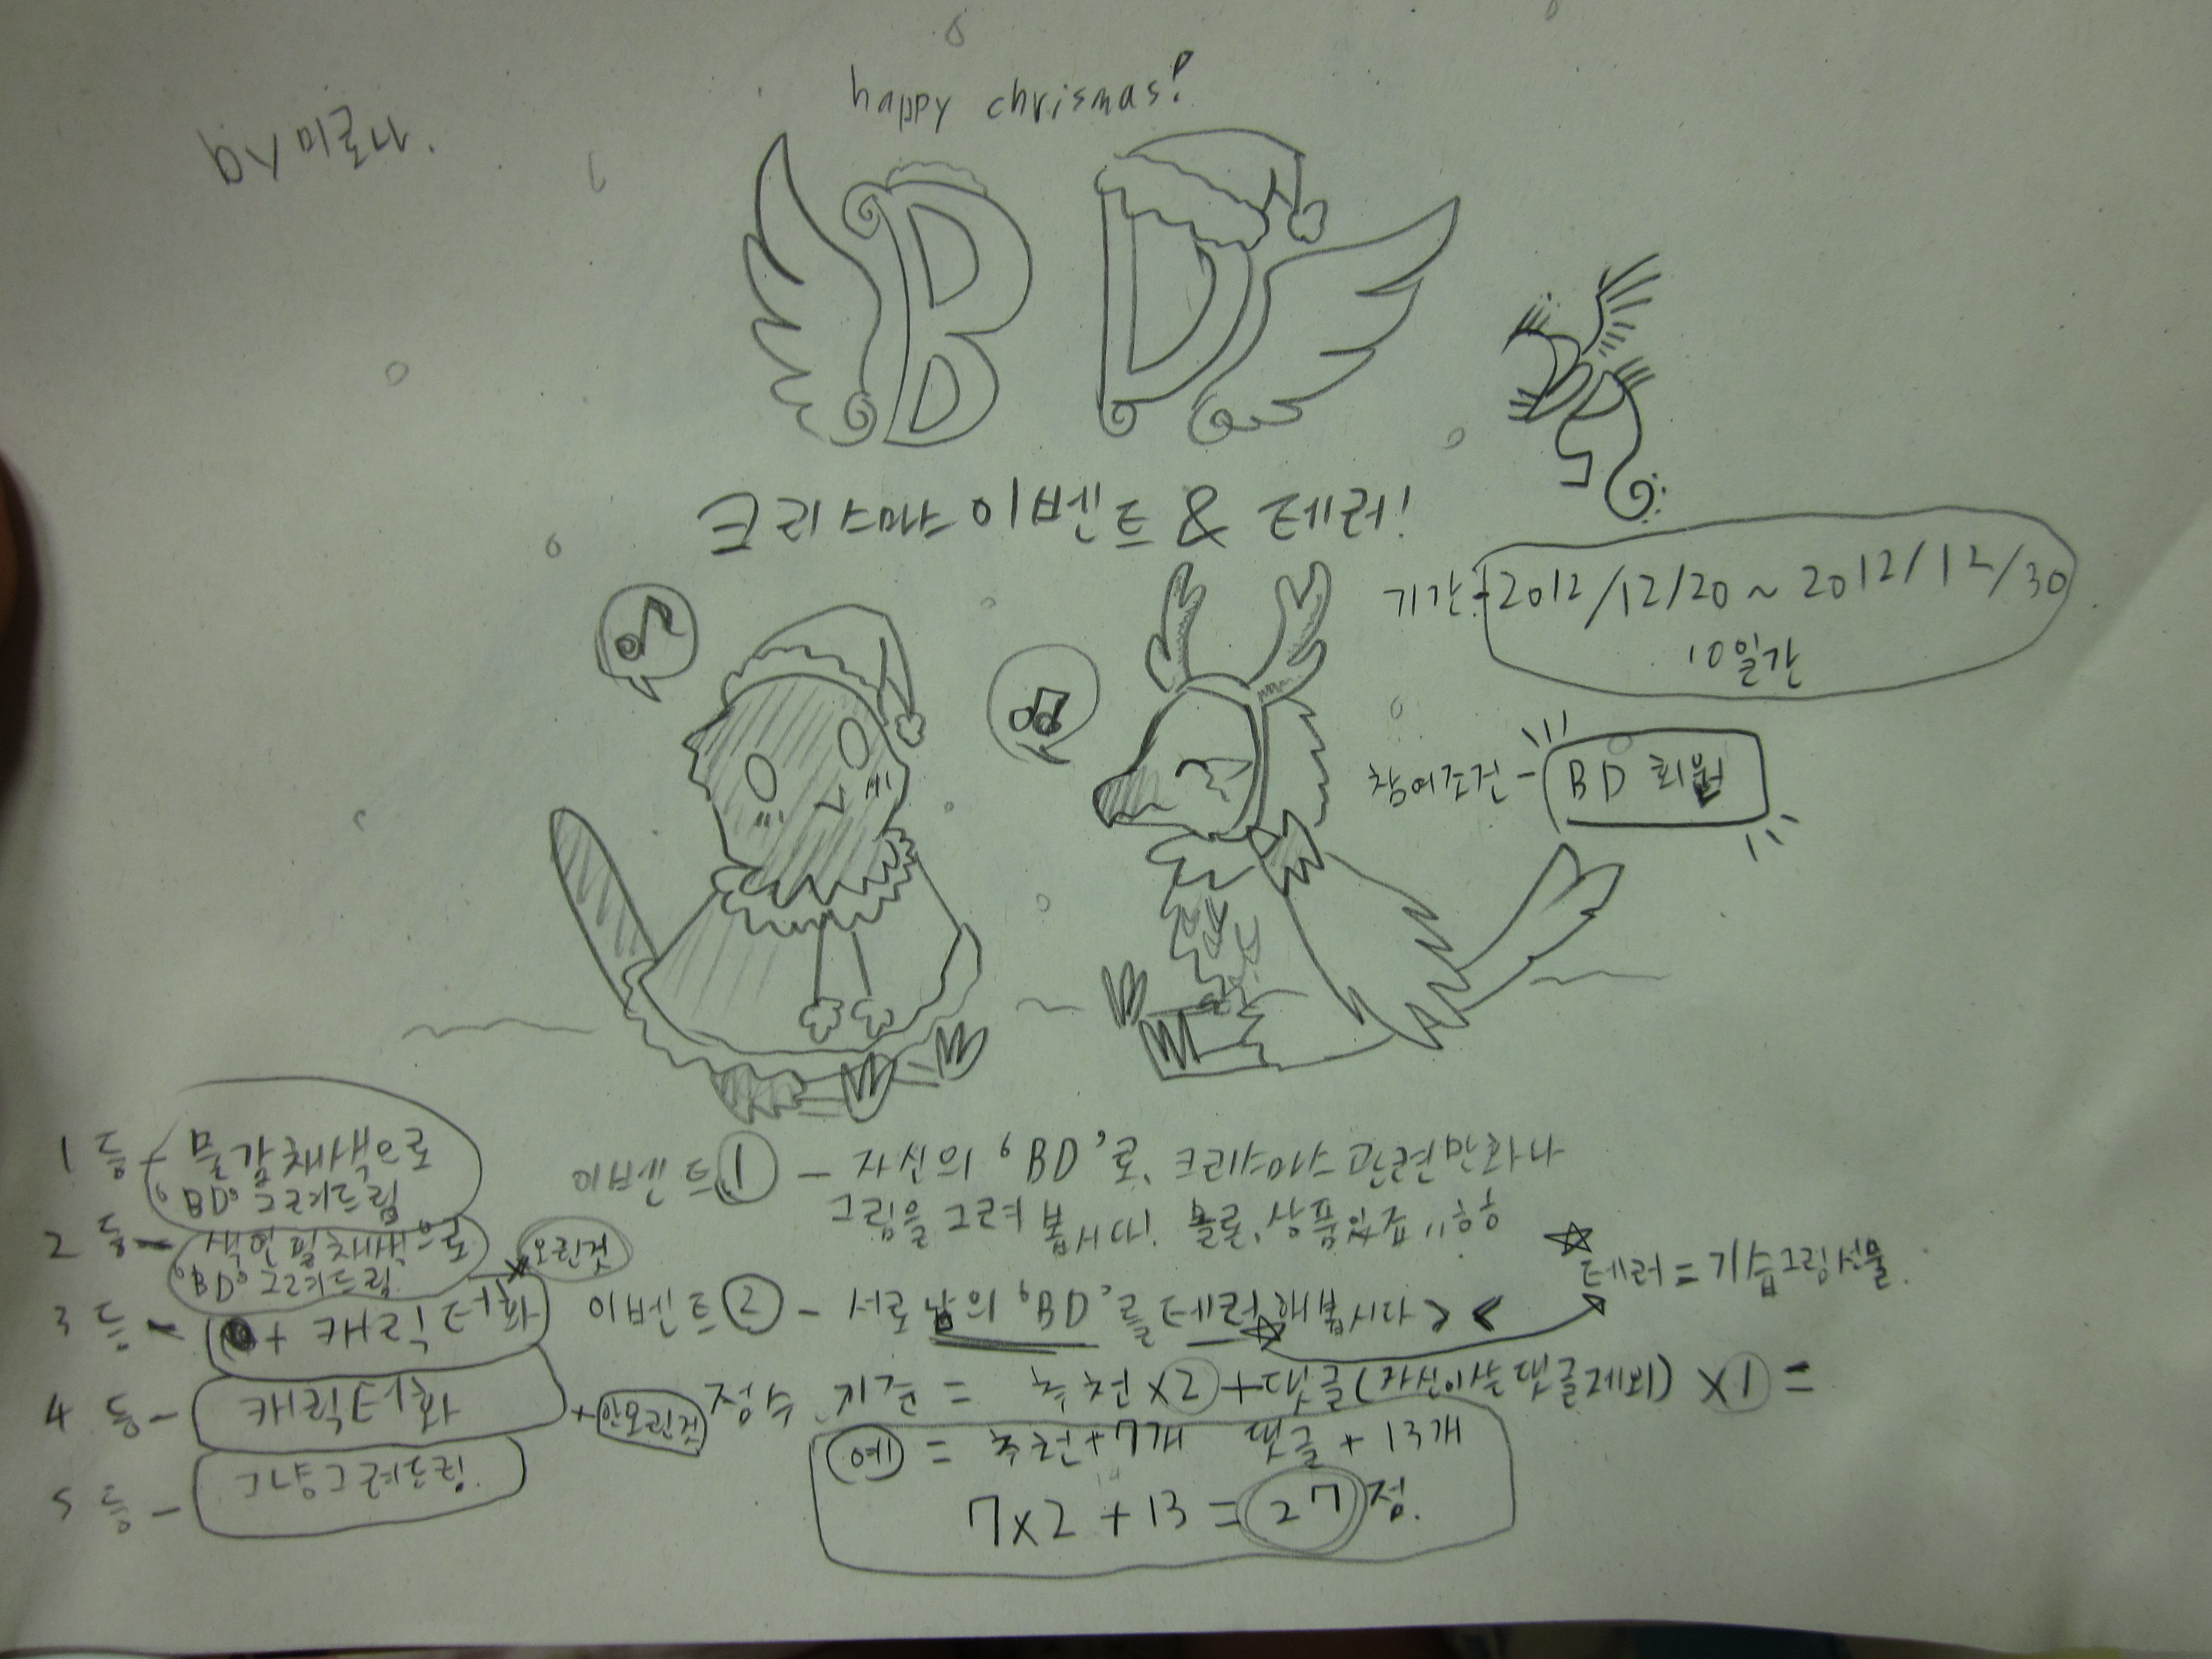 happy chrismas!
by 미로나.
BD
크리스마스 이벤트 & 테러!
기간: 2012/12/20 ~ 2012/12/30
10일간
참여조건 - BD 회원
1등 - 물감채색으로
'BD' 그려드림
2등 - 색연필채색으로
'BD' 그려드림
오린것
3등 - + 캐릭터화
4등 - 캐릭터화
+ 안오린것
5등 - 그냥그려드림.
이벤트 1 - 자신의 'BD'로, 크리스마스 관련만화나
그림을 그려 봅시다! 물론, 상품있죠 ㅎㅎ
이벤트 2 - 서로 남의 'BD'를 테러해봅시다 > <
테러 = 기습그림선물.
점수 기준 = 추천 x2 + 댓글(자신이쓰는댓글제외) x1 =
예 = 추천+7개 댓글+13개
7x2 + 13 = 27점.